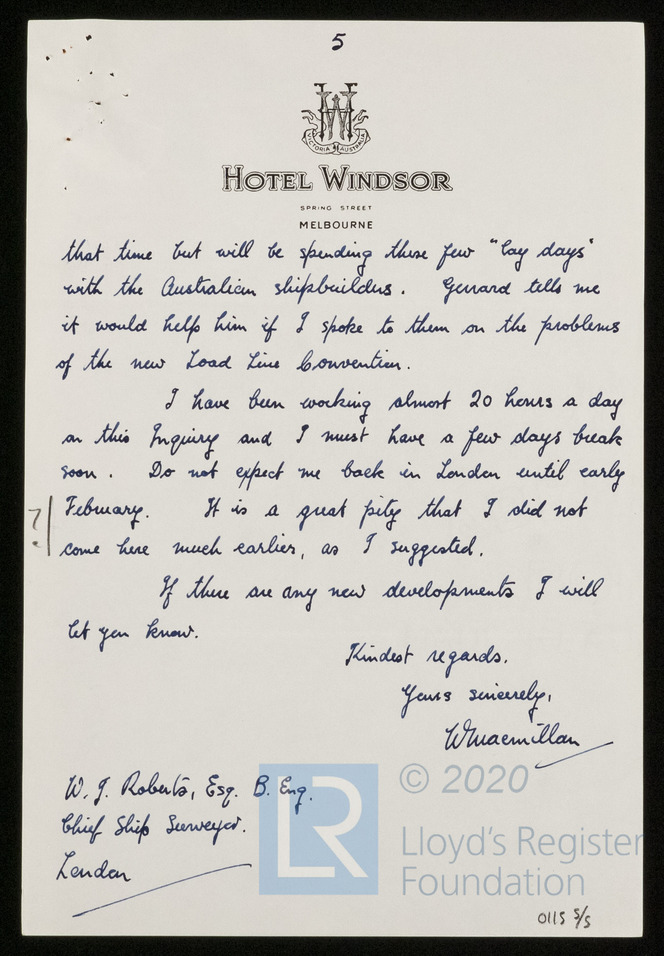 5
VICTORIA AUSTRALIA
HOTEL WINDSOR
SPRING STREET
MELBOURNE
that time but will be spending these few "lay days"
with the Australian shipbuilders. Gerrard tells me
it would help him if I spoke to them on the problems
of the new Load Line Convention.
I have been working almost 20 hours a day
on this Inquiry and I must have a few days break
soon. Do not expect me back in London until early
February. It is a great pity that I did not
?
come here much earlier, as I suggested.
If there are any new developments I will
let you know.
Kindest regards.
Yours sincerely,
WMacmillan
W. J. Roberts, Esq. B. Eng.
Chief Ship Surveyor.
London
LR
© 2020
Lloyd's Register
Foundation
0115 5/5